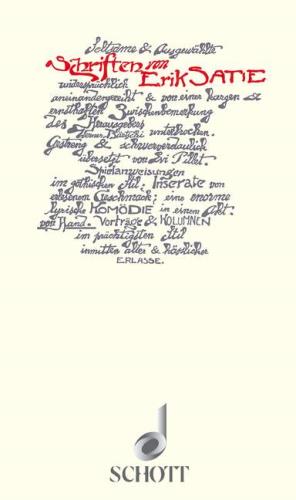 Seltsame & Ausgewählte
Schriften von
Erik SATIE
widersprüchlich
aneinandergereiht & von einer kargen &
ernsthaften Zwischenbemerkung
des Herausgebers
Werner Bärtschi unterbrochen.
Gestreng & schwerverdaulich
übersetzt von Evi Pillet
Spielanweisungen
im gothischen Stil. Inserate von
erlesenem Geschmack; eine enorme
lyrische KOMÖDIE in einem Akt.
von Hand. Vorträge & KOLUMNEN
im prächtigsten Stil
inmitten alter & köstlicher
ERLASSE.
SCHOTT